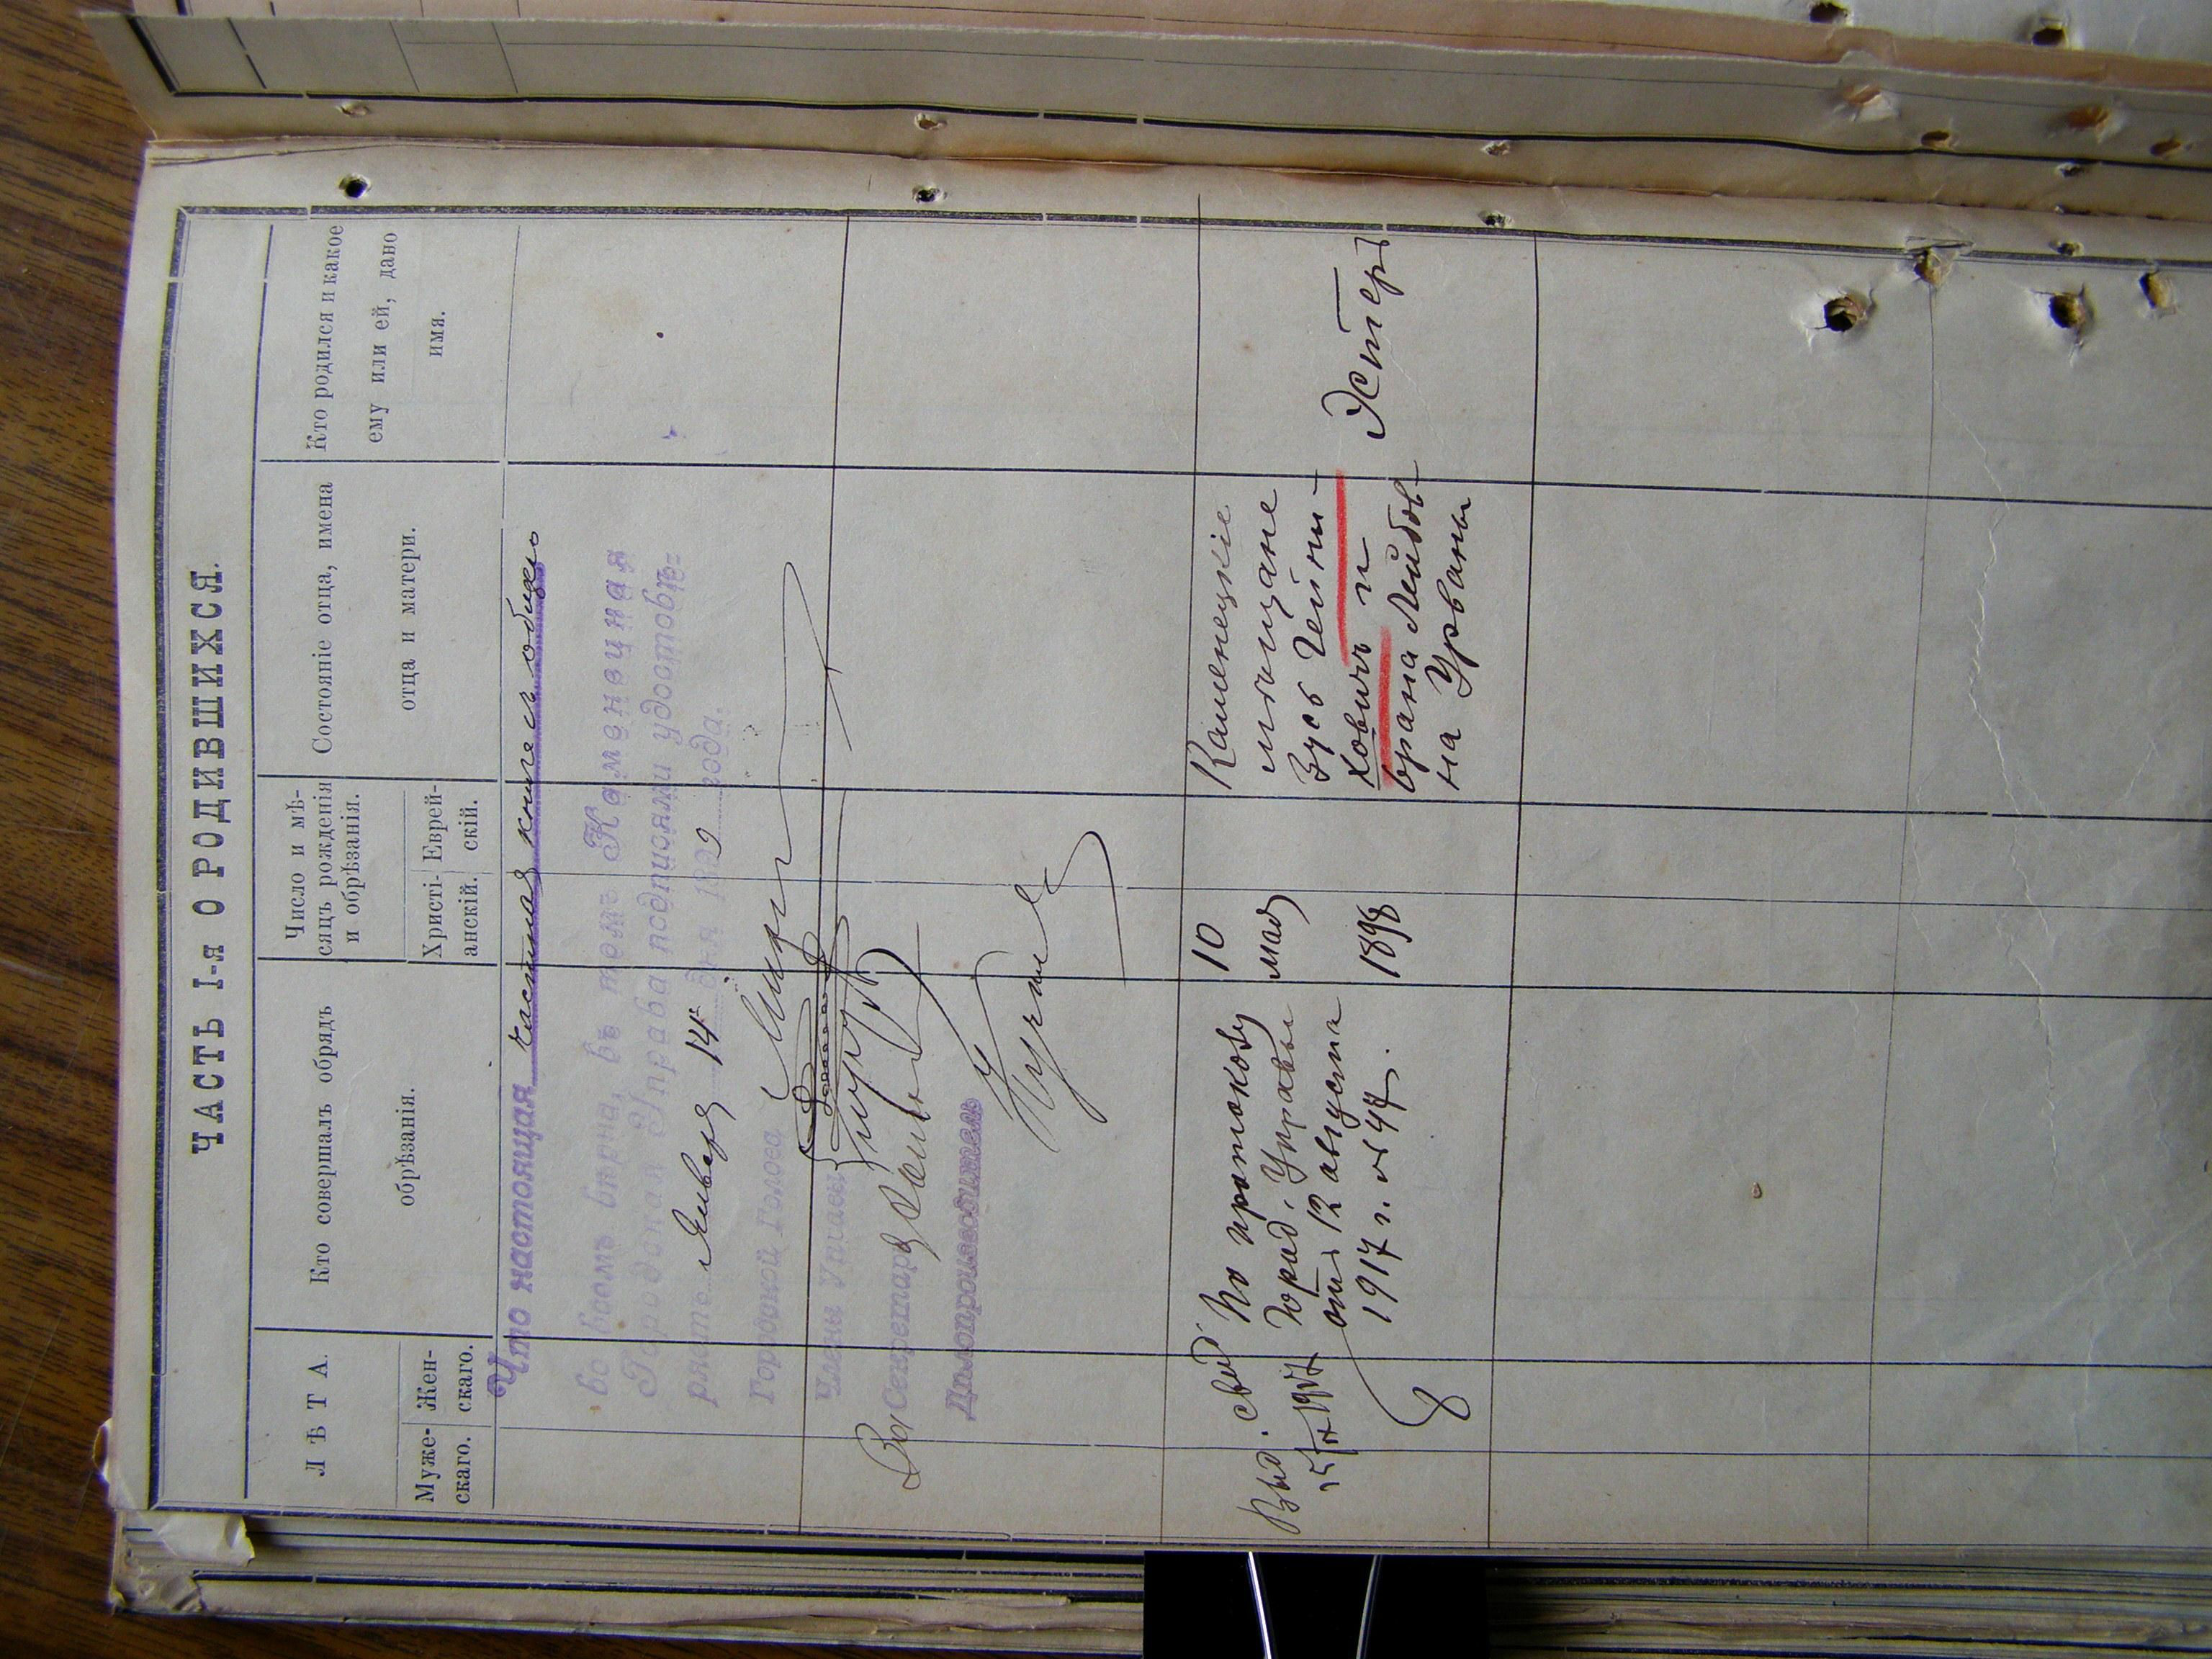 ЧАСТЬ I-я О РОДИВШИХСЯ.
Л Ѣ Т А.
Муже-
скаго.
Жен-
скаго.
Кто совершалъ обрядъ
обрѣзанія.
Число и мѣ-
сяцъ рожденія
и обрѣзанія.
Христі-
анскій.
Еврей-
скій.
Состояніе отца, имена
отца и матери.
Кто родился и какое
ему или ей, дано
имя.
Что настоящая
во всемъ вѣрна, въ томъ Каменецкая
Городская Управа подписями удостовѣ-
ряетъ Января 14 дня 1899 года.
Городской Голова
Члены Управы
Секретарь
Дѣлопроизводитель
Выд. свид
1917
По протоколу
Город. Управы
отъ 12 августа
1917 г. № 47.
10
мая
1898
Каменецкіе
мѣщане
Зусь Гейни-
ховичъ и
врана Лейбов-
на Урваны
Эстеръ